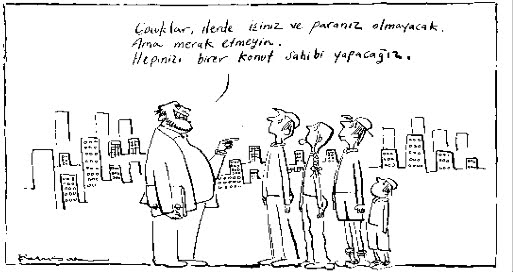 Çocuklar, ilerde işiniz ve paranız olmayacak.
Ama merak etmeyin.
Hepinizi birer konut sahibi yapacağız.